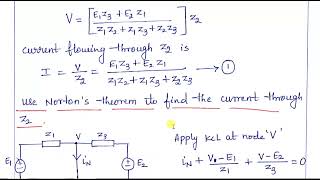 V = [E₁Z₃ + E₂Z₁ / Z₁Z₂ + Z₁Z₃ + Z₂Z₃] Z₂
current flowing through Z₂ is
I = V/Z₂ = E₁Z₃ + E₂Z₁ / Z₁Z₂ + Z₁Z₃ + Z₂Z₃ → ①
Use Norton's theorem to find the current through
Z₂.
Z₁ V Z₃
E₁ iN E₂
Apply KCL at node 'V'
iN + V - E₁ / Z₁ + V - E₂ / Z₃ = 0